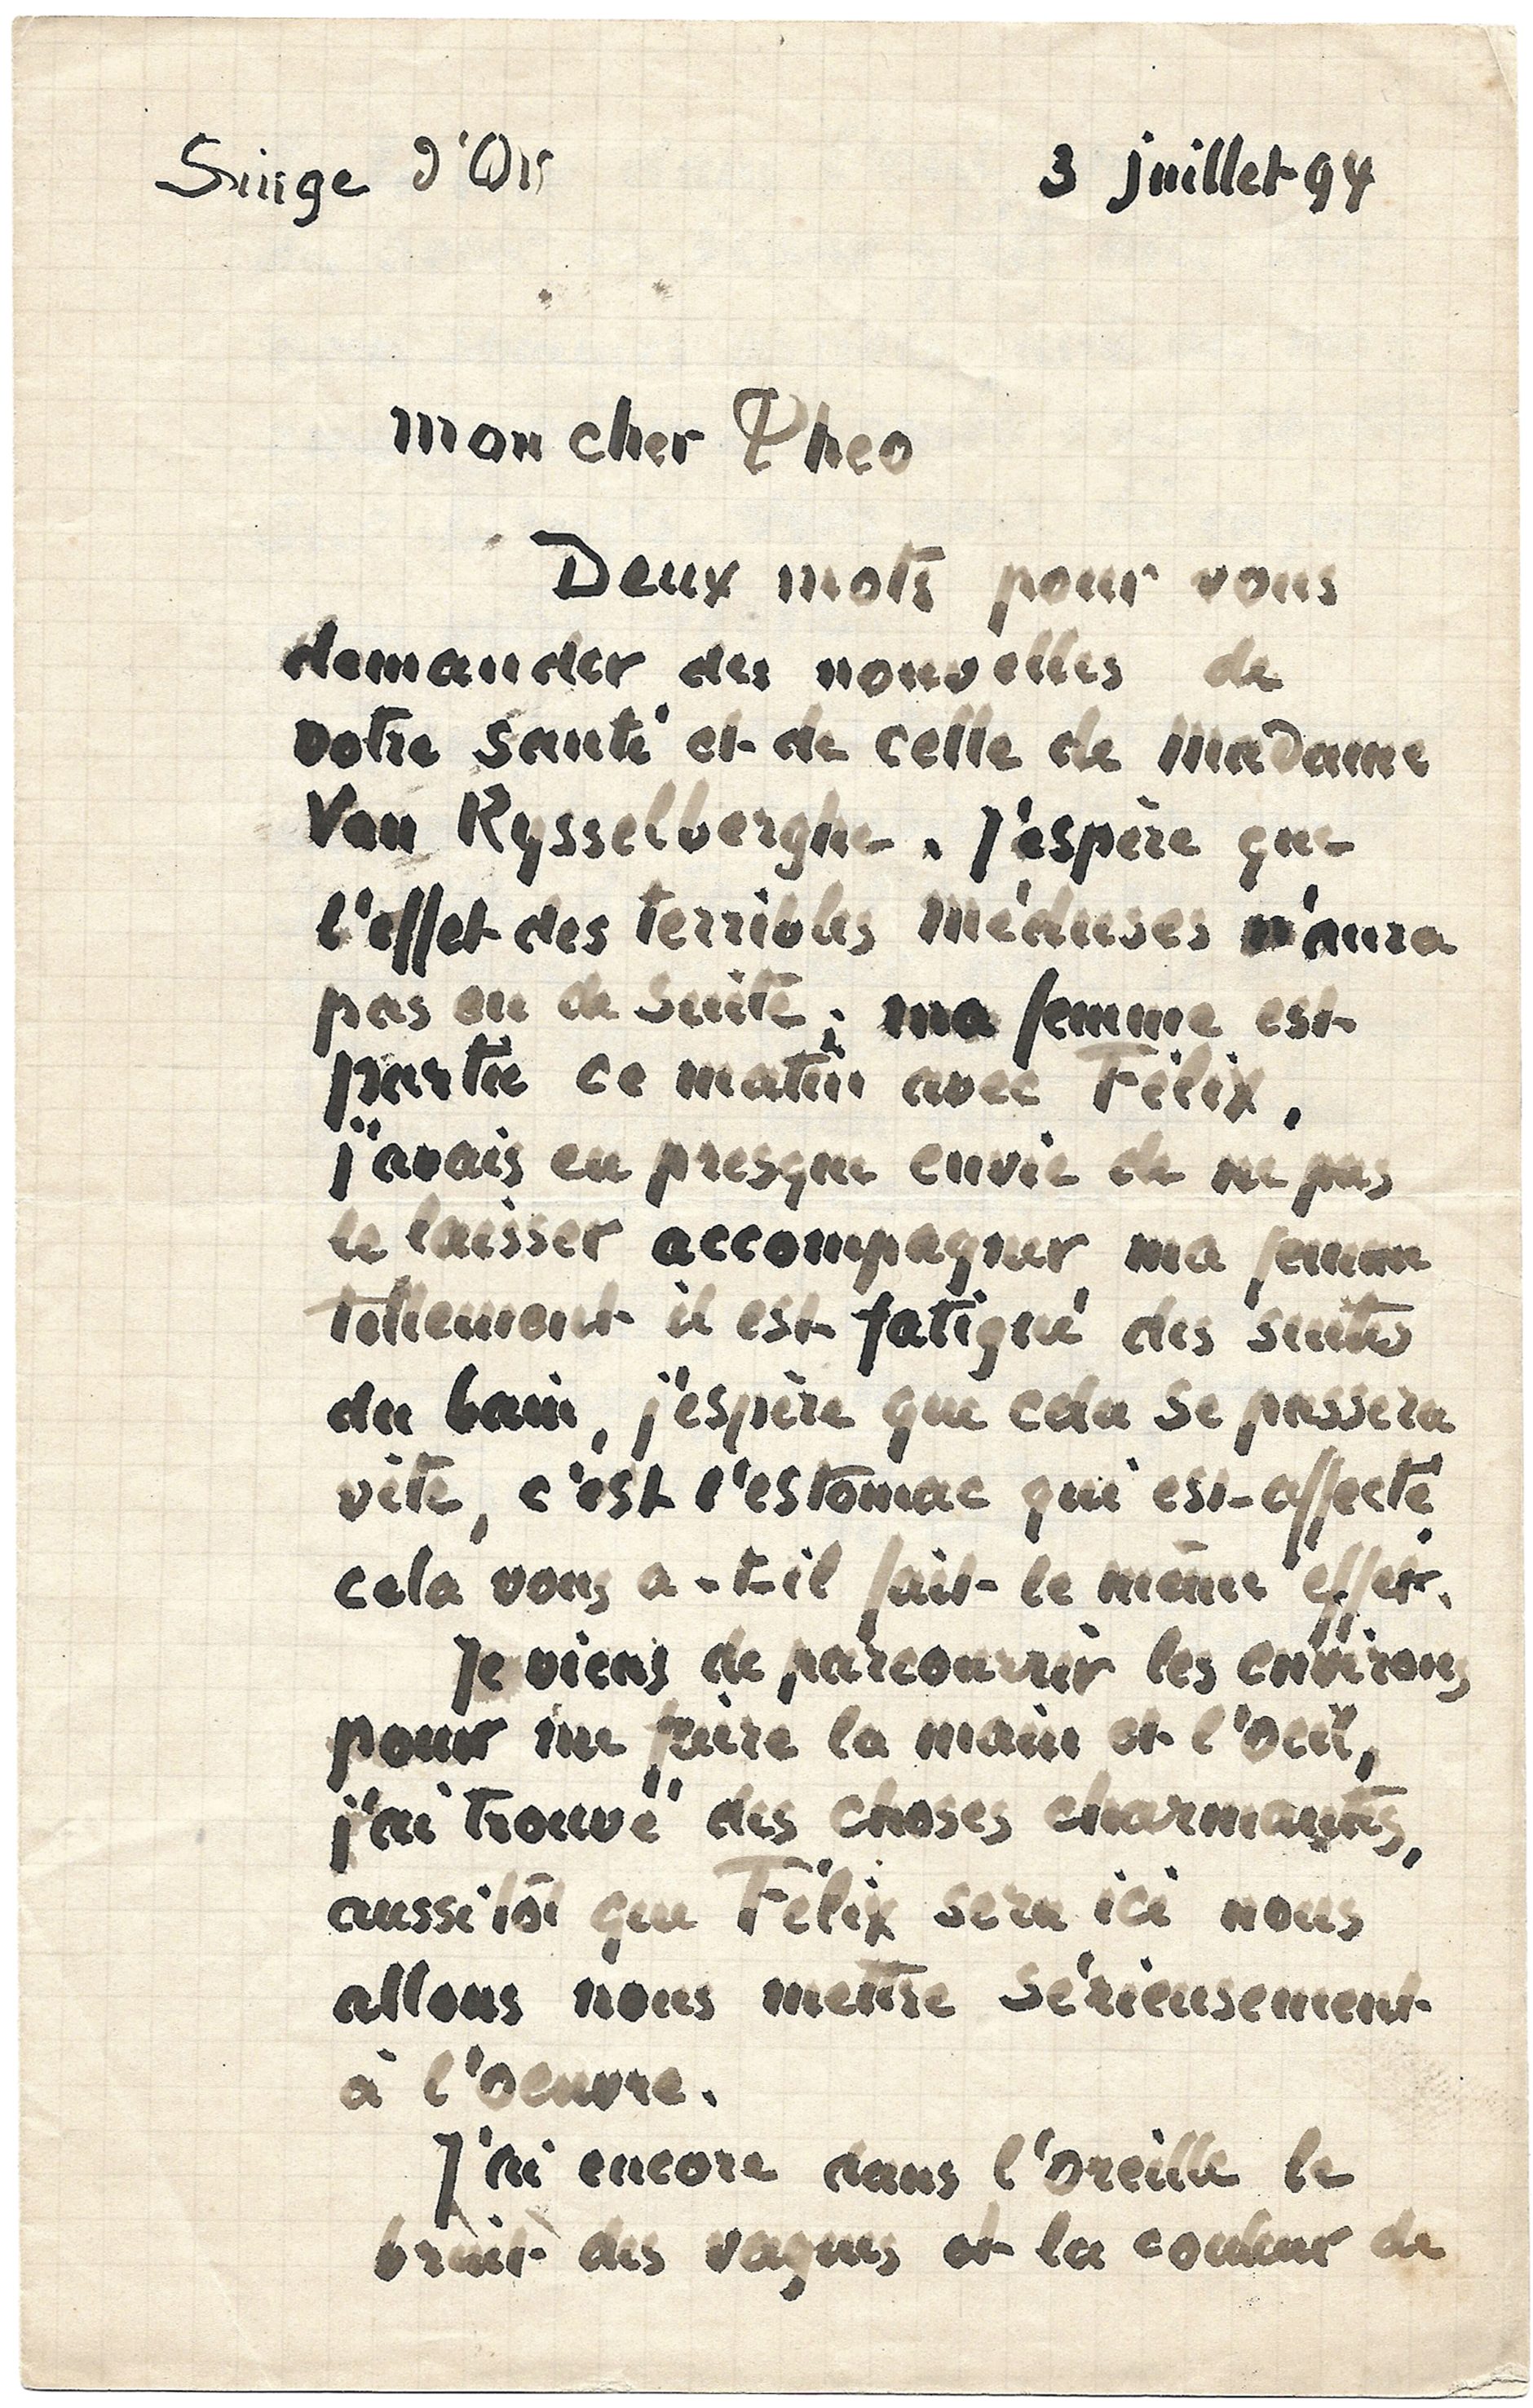 Singe d'Or 3 juillet 94
mon cher Theo
Deux mots pour vous
demander des nouvelles de
votre santé et de celle de madame
Van Rysselberghe. J'espère que
l'effet des terribles méduses n'aura
pas eu de suite; ma femme est
partie ce matin avec Félix,
j'avais eu presque envie de ne pas
le laisser accompagner ma femme
tellement il est fatigué des suites
du bain, j'espère que cela se passera
vite, c'est l'estomac qui est affecté
cela vous a-t-il fait le même effet.
Je viens de parcourrir les environs
pour me faire la main et l'oeil,
j'ai trouvé des choses charmantes,
aussitôt que Félix sera ici nous
allons nous mettre sérieusement
à l'oeuvre.
J'ai encore dans l'oreille le
bruit des vagues et la couleur de